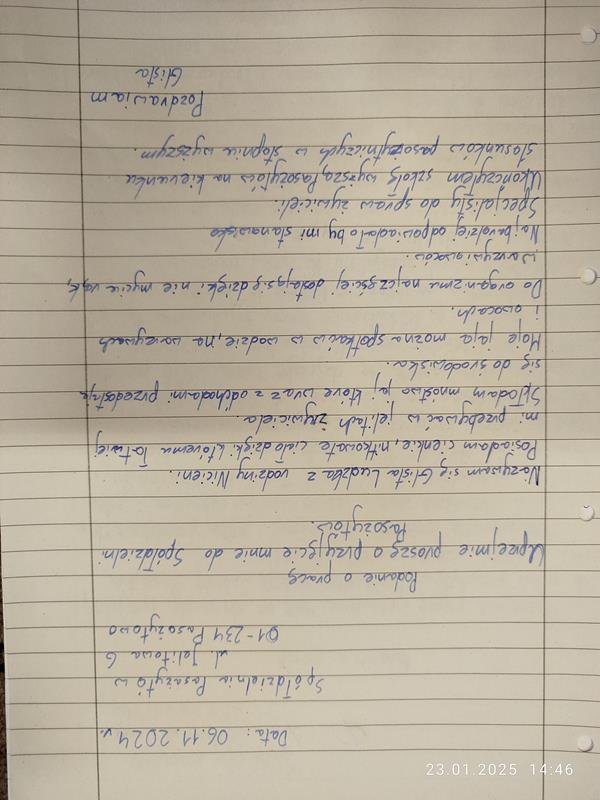 Data: 06.11.2024 r.
Spółdzielnia Pasożytów
ul. Jelitowa 6
01-234 Pasożytowo
Podanie o pracę
Uprzejmie proszę o przyjęcie mnie do Spółdzielni
Pasożytów.
Nazywam się Glista Ludzka z rodziny Nicieni.
Posiadam cienkie, nitkowate ciało dzięki któremu łatwiej
mi przebywać w jelitach żywiciela.
Składam mnóstwo jaj które wraz z odchodami przedostają
się do środowiska.
Moje jaja można spotkać w wodzie, na warzywach
i owocach.
Do organizmu najczęściej dostają się dzięki nie mycie rąk,
warzyw i owoców.
Najbardziej odpowiadało by mi stanowisko
Specjalisty do spraw żywicieli.
Ukończyłem szkołę wyższą Pasożytów na kierunku
stosunków pasożytniczych w stopniu wyższym.
Pozdrawiam
Glista
23.01.2025 14:46